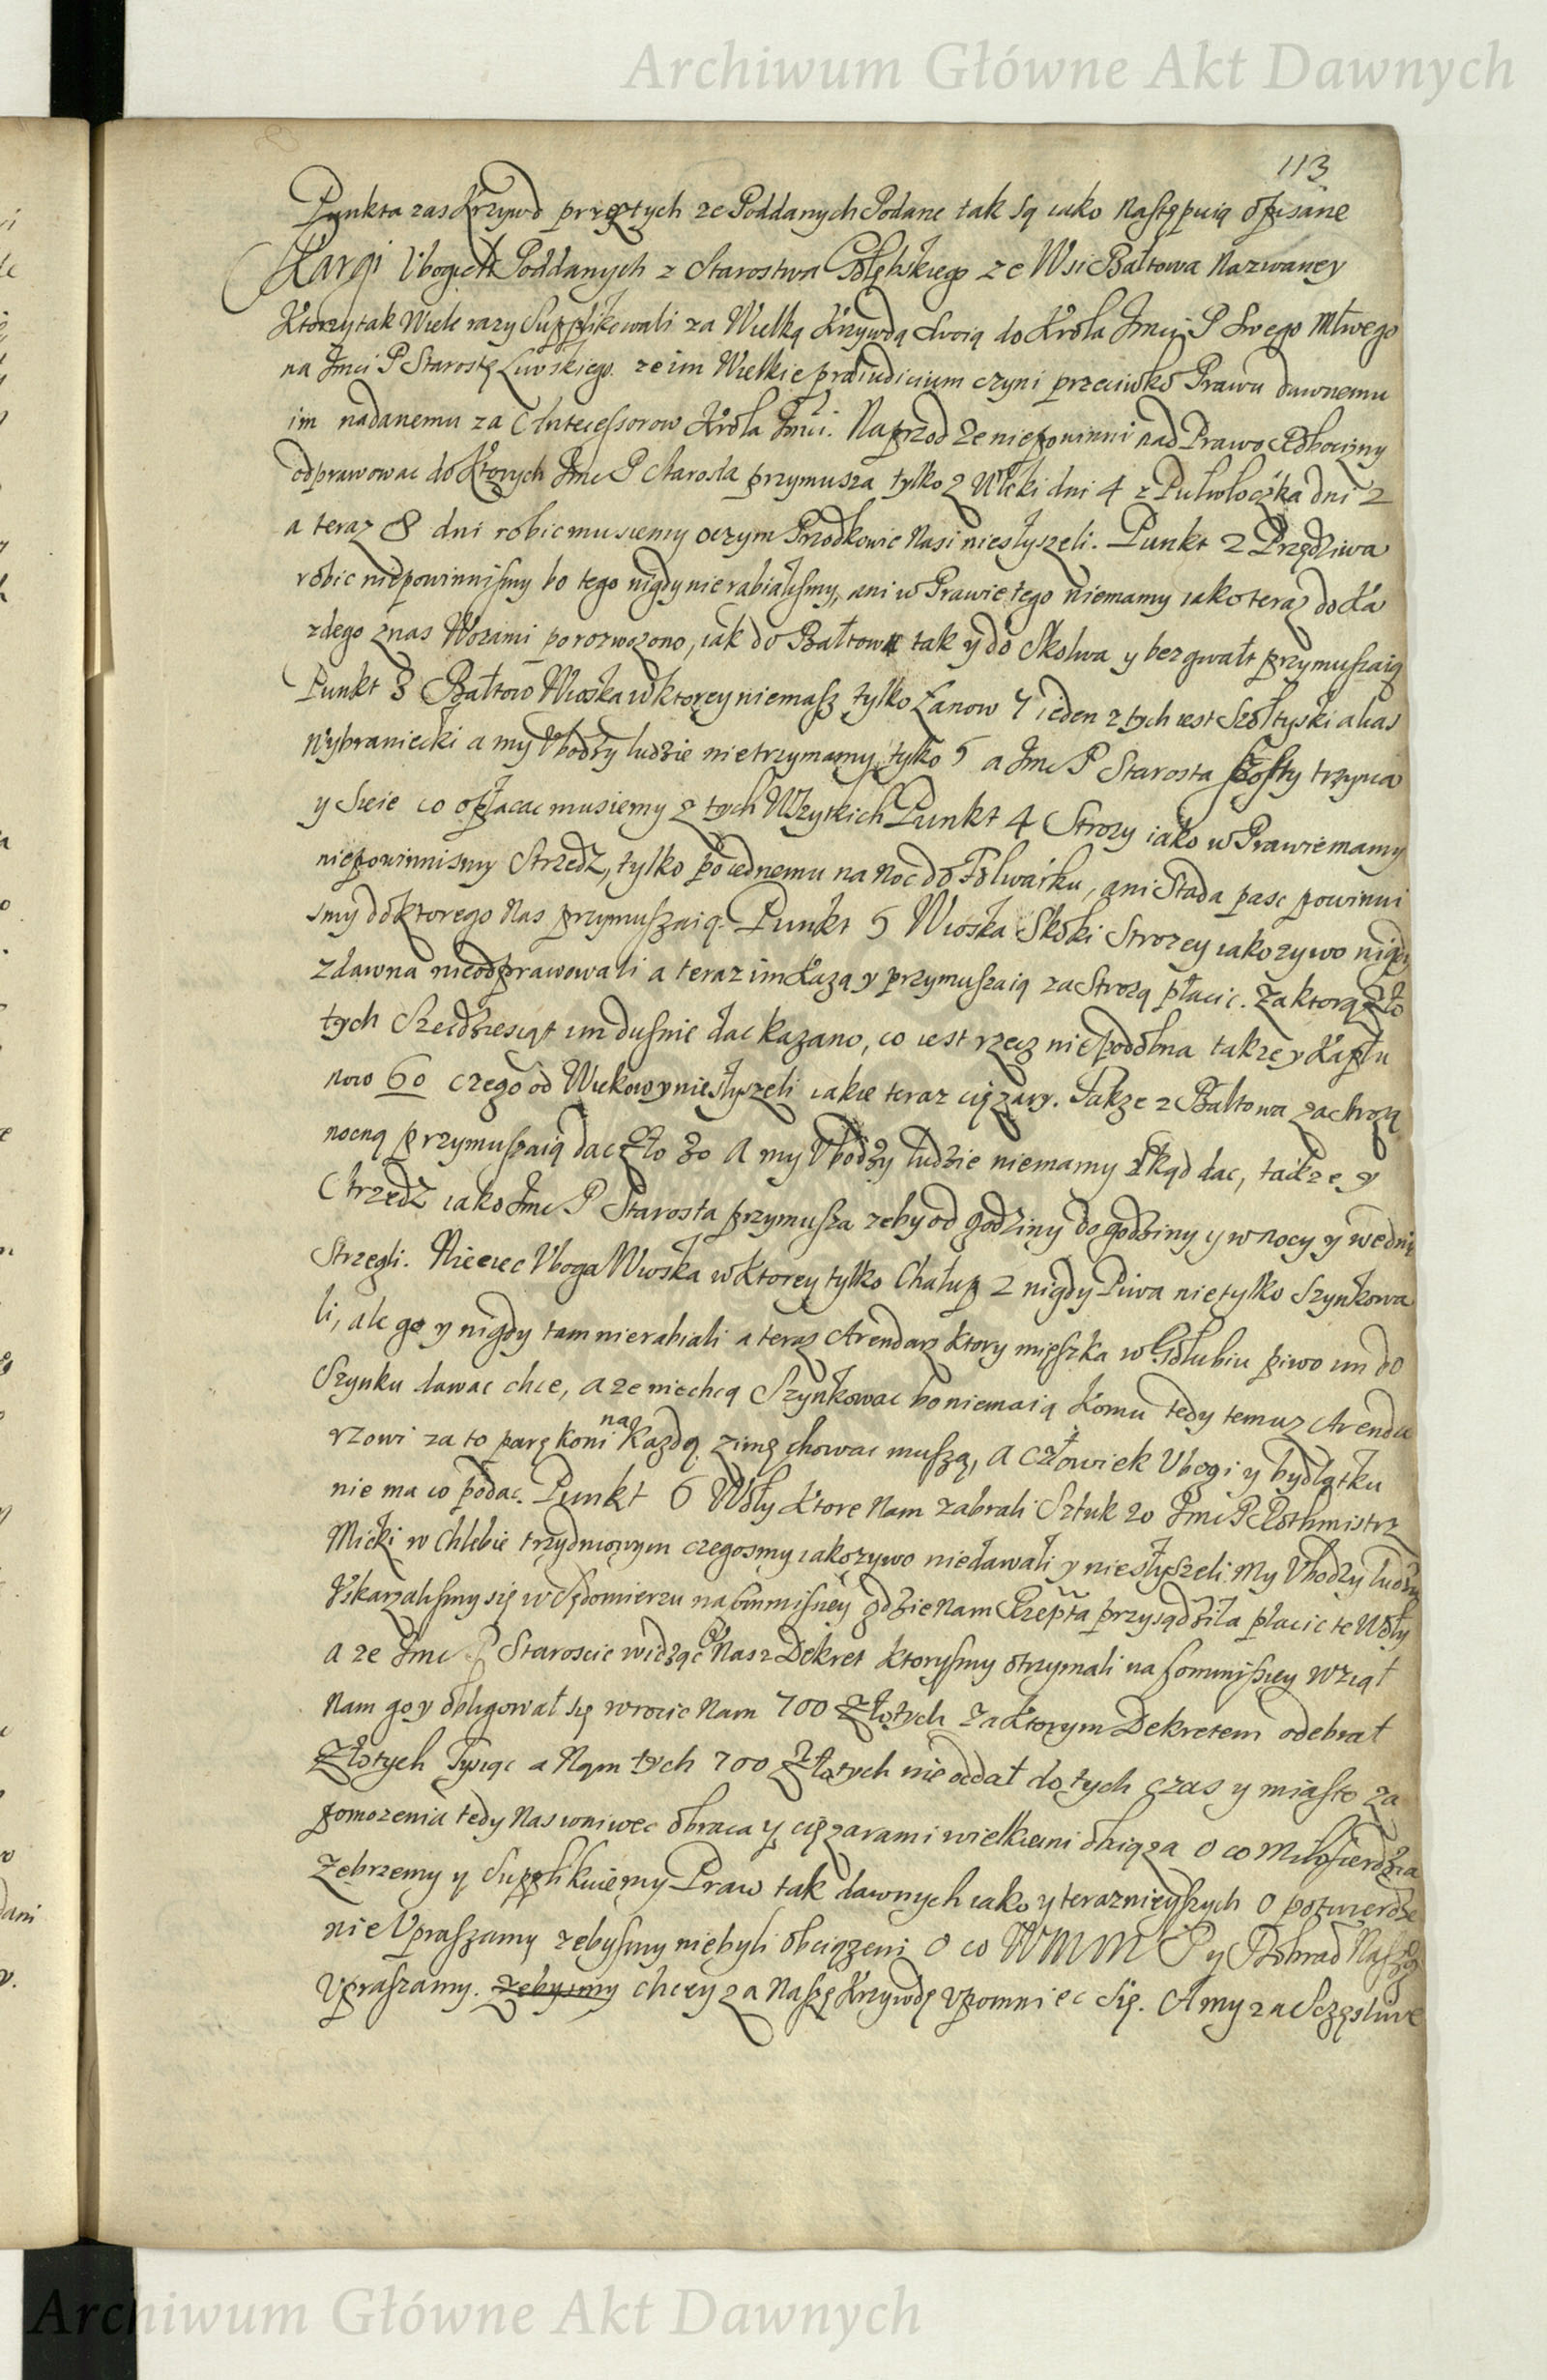 Archiwum Główne Akt Dawnych
113
Punkta zas Krzywd przez tych ze Poddanych Podane tak są iako Następuią opisane
Skargi Vbogich Poddanych z Starostwa Gołębskiego ze Wsi Bałtowa Nazwaney
Ktorzy tak Wiele razy Supplikowali za Wielką Krzywdą Swoią do Krola Jmci P Swego Młwego
na Jmci P Starostę Luvskiego. ze im Wielkie praiudicium czyni przeciwko Prawu dawnemu
im nadanemu za Antecessorow Krola Jmci. Naprzod Ze niepowinni nad Prawo Robocizny
odprawowac do Ktorych Jmc P Starosta przymusza tylko z Włoki dni 4 z Pułwłoczka dni 2
a teraz 8 dni robic musiemy oczym Przodkowie Nasi niesłyszeli. Punkt 2 Przędziwa
robic niepowinnismy bo tego nigdy nierabialismy, ani w Prawie tego niemamy iako teraz do Ka
zdego znas Wozami porozwozono, iak do Bałtowa tak y do Skolwa y bez gwałt przymuszaią
Punkt 3 Bałtow Wioska w ktorey niemasz tylko Łanow 7 ieden z tych iest Szołtyski alias
Wybraniecki a my Vbodzy ludzie nietrzymamy tylko 5 a Jmc P Starosta szosty trzyma
y sieie co opłacac musiemy z tych Wszytkich Punkt 4 Strozy iako w Prawie mamy
niepowinnismy Strzedz, tylko po iednemu na noc do Folwarku, ani Stada pasc powinni
smy do ktorego Nas przymuszaią. Punkt 5 Wioska Skoki Strozey iako zywo nigdy
zdawna nieodprawowali a teraz im Kazą y przymuszaią za Strozą płacic. Za ktorą Zło
tych Szescdziesiąt im dusnie dac kazano, co iest rzecz niepodobna takze y Kapłu
now 60 czego od Wiekow y niesłyszeli iakie teraz ciężary. Takze z Bałtowa za strozą
nocną przymuszaią dac Zło 30 A my Vbodzy ludzie niemamy Skąd dac, takze y
Strzedz iako Jmc P Starosta przymusza zeby od godziny do godziny y w nocy y wednie
Strzegli. Nieciec Vboga Wioska w Ktorey tylko Chałup 2 nigdy Piwa nie tylko Szynkowa
li, ale go y nigdy tam nierabiali a teraz Arendarz ktory mięszka w Gołubiu piwo im do
Szynku dawac chce, a ze niechcą Szynkowac bo niemaią Komu tedy temuz Arenda
rzowi za to parę koni na Kazdą zimę chowac muszą, a człowiek Vbogi y bydlątku
nie ma co podac. Punkt 6 Woły Ktore Nam zabrali Sztuk 20 Jmc P Rothmistrz
Micki w Chlebie trzydniowym czegosmy iako zywo niedawali y niesłyszeli. My Vbodzy ludzie
Vskarzalismy się w Sędomierzu na Commisiey gdzie Nam Rzepta przysądziła płacic te Woły
a ze Jmc P Staroscie widząc Nasz Dekret ktorysmy otrzymali na Commisiey wziął
Nam go y obligował się wrocic Nam 700 Złotych Za Ktorym Dekretem odebrał
Złotych Tysiąc a Nam tych 700 Złotych nie oddał do tych czas y miasto za
pomozenia tedy Nas wniwec obraca y ciężarami wielkiemi obciąza o co Miłosierdzia
Zebrzemy y Supplikuiemy Praw tak dawnych iako y teraznieyszych o potwierdze
nie Vpraszamy zebysmy niebyli obciązeni o co WMM P y Dobrad Naszy
Vpraszamy. zebysmy chciey za Naszę Krzywdę vpomniec Się. A my za Sczęsliwe
Archiwum Główne Akt Dawnych